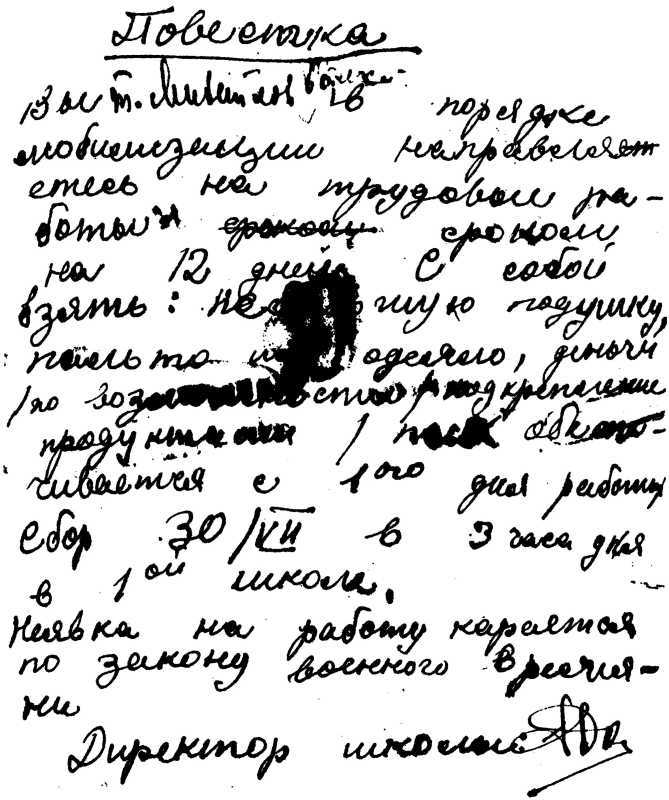 Повестка
Вы т. в порядке
мобилизации направляет
етесь на трудовые ра-
боты сроком
на 12 дней С собой
взять: подушку,
пальто одеяло, деньги
/по подкрепление
продуктами / обеспе-
чивается с 1ого дня работы
Сбор 30/VII в 3 часа дня
в 1ой школе.
Неявка на работу карается
по закону военного времени-
ни
Директор школы